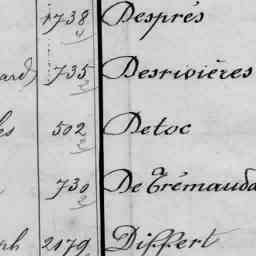 1738 Després
ard) 735 Desrivières
es 502 Detoc
730 De Trémauda
ph 2179 Differt